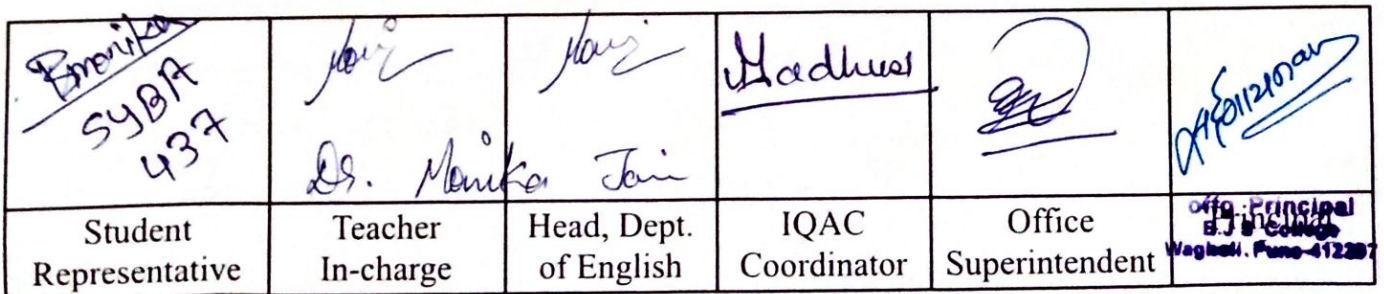 SYBA
437
Dr. Monika Jain
Student Representative
Teacher In-charge
Head, Dept. of English
IQAC Coordinator
Office Superintendent
Principal
offg. Principal
B.J.S College
Wagholi, Pune-412207